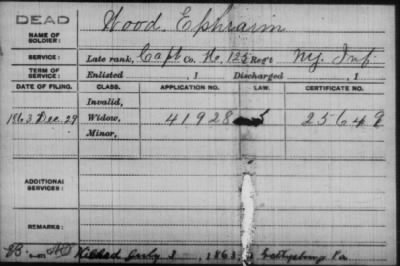 DEAD
NAME OF SOLDIER: Wood, Ephraim
SERVICE: Late rank, Capt Co. K, 125 Regt N.Y. Inf.
TERM OF SERVICE: Enlisted , 1 Discharged , 1
DATE OF FILING. CLASS. APPLICATION NO. LAW. CERTIFICATE NO.
Invalid,
1863 Dec. 29 Widow, 41928 25649
Minor,
ADDITIONAL SERVICES:
REMARKS:
Killed July 3, 1863 Gettysburg Pa